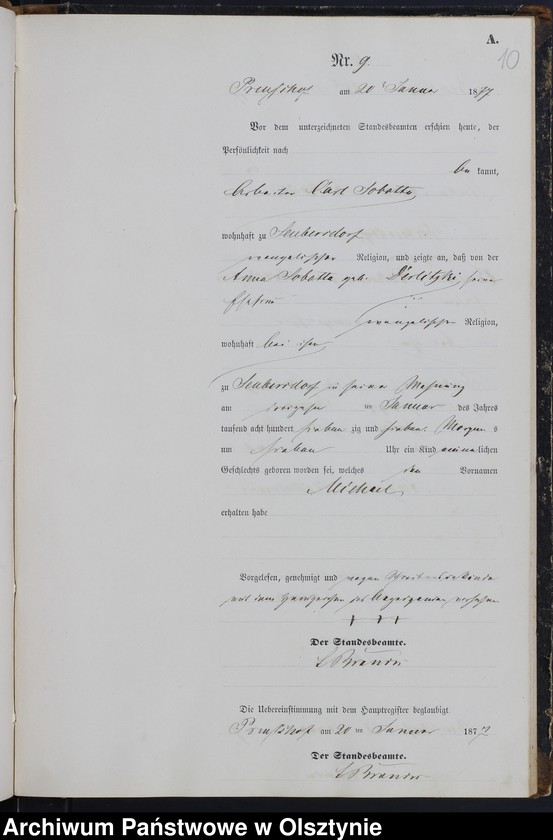 A.
10
Nr. 9.
am 20 Januar 1877
Vor dem unterzeichneten Standesbeamten erschien heute, der
Persönlichkeit nach
be kannt,
Arbeiter Carl Sobotta,
wohnhaft zu Seubersdorf
evangelischer Religion, und zeigte an, daß von der
Anna Sobotta geb. seiner
Ehefrau
evangelischer Religion,
wohnhaft bei ihm
zu Seubersdorf in seiner Wohnung
am ten Januar des Jahres
tausend acht hundert sieben zig und sieben Morgen s
um sieben Uhr ein Kind männlichen
Geschlechts geboren worden sei, welches den Vornamen
Michael
erhalten habe
Vorgelesen, genehmigt und wegen Schreibensunkunde
mit dem Handzeichen des Anzeigenden versehen
† † †
Der Standesbeamte.
Die Uebereinstimmung mit dem Hauptregister beglaubigt
am 20 ten Januar 1877
Der Standesbeamte.
Archiwum Państwowe w Olsztynie